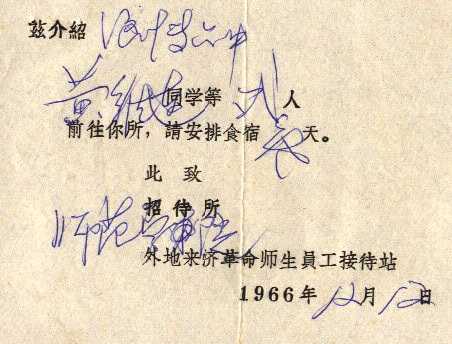 茲介紹
黃 同学等 弍 人
前往你所，請安排食宿 天。
此 致
招待所
师范学院
外地来济革命师生員工接待站
1966年12月12日